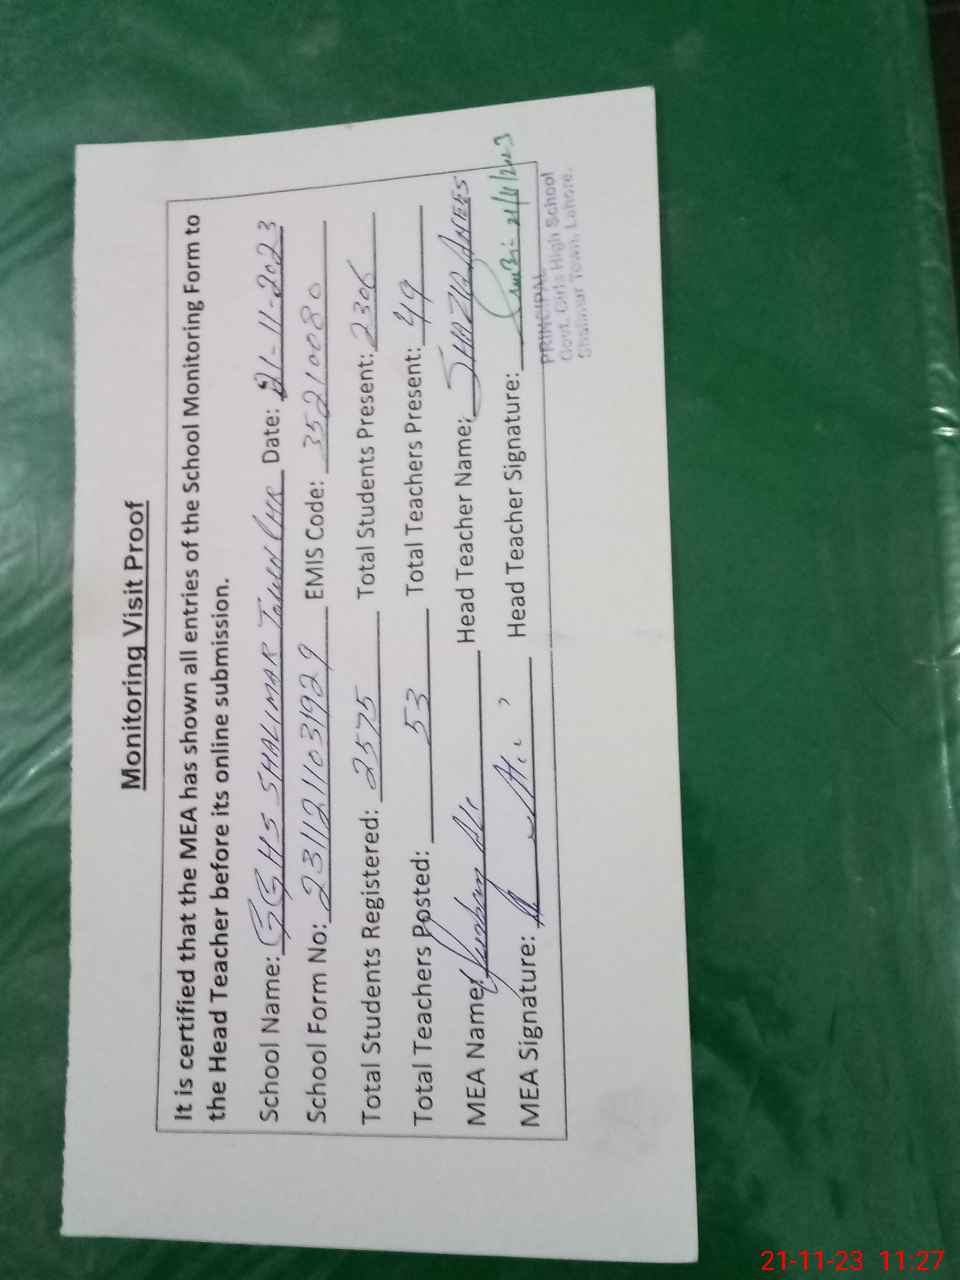 Monitoring Visit Proof
It is certified that the MEA has shown all entries of the School Monitoring Form to
the Head Teacher before its online submission.
School Name: GGHS SHALIMAR TOWN LHR Date: 21-11-2023
School Form No: 2311211031929 EMIS Code: 35210080
Total Students Registered: 2575 Total Students Present: 2306
Total Teachers Posted: 53 Total Teachers Present: 49
MEA Name: Head Teacher Name: SHAZIA ANEES
MEA Signature: Head Teacher Signature: 21/11/2023
PRINCIPAL
Govt. Girls High School
Shalimar Town, Lahore.
21-11-23 11:27